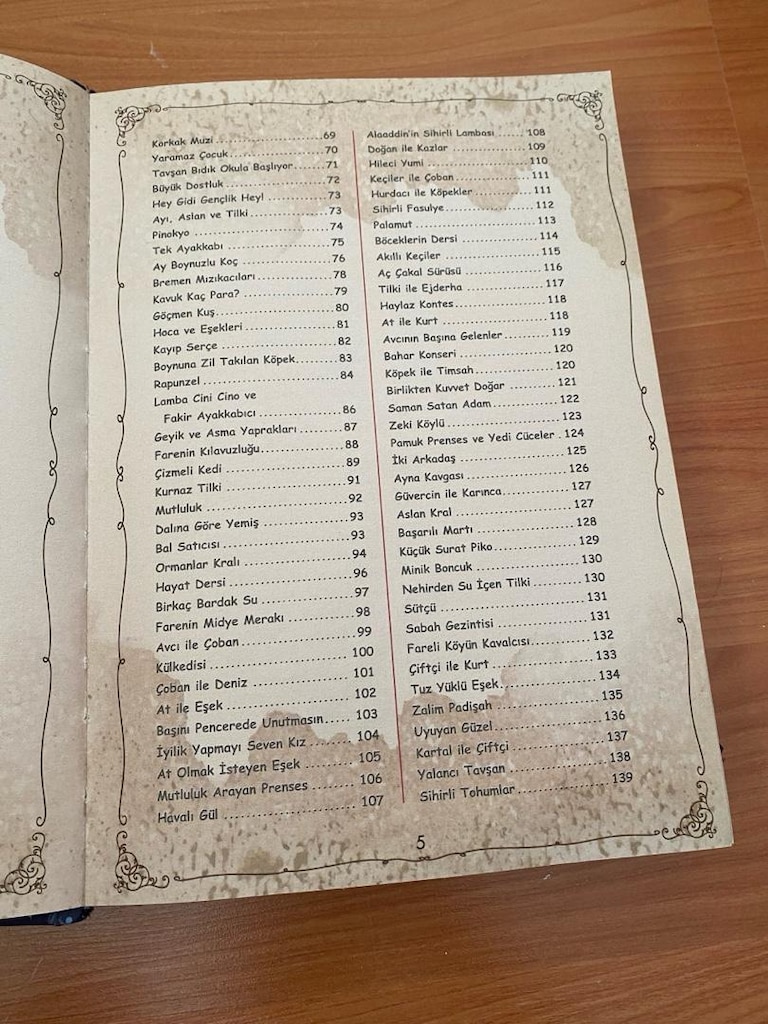 Korkak Muzi ........................ 69
Yaramaz Çocuk ........................ 70
Tavşan Bıdık Okula Başlıyor ....... 71
Büyük Dostluk ........................ 72
Hey Gidi Gençlik Hey! ............... 73
Ayı, Aslan ve Tilki .................. 73
Pinokyo .............................. 74
Tek Ayakkabı ........................ 75
Ay Boynuzlu Koç ..................... 76
Bremen Mızıkacıları .................. 78
Kavuk Kaç Para? ..................... 79
Göçmen Kuş ........................... 80
Hoca ve Eşekleri ..................... 81
Kayıp Serçe ........................... 82
Boynuna Zil Takılan Köpek ......... 83
Rapunzel .............................. 84
Lamba Cini Cino ve
Fakir Ayakkabıcı ..................... 86
Geyik ve Asma Yaprakları ......... 87
Farenin Kılavuzluğu .................. 88
Çizmeli Kedi ........................... 89
Kurnaz Tilki ........................... 91
Mutluluk .............................. 92
Dalına Göre Yemiş .................. 93
Bal Satıcısı ........................... 93
Ormanlar Kralı ........................ 94
Hayat Dersi ........................... 96
Birkaç Bardak Su ..................... 97
Farenin Midye Merakı ............... 98
Avcı ile Çoban ........................ 99
Külkedisi .............................. 100
Çoban ile Deniz ..................... 101
At ile Eşek ........................... 102
Başını Pencerede Unutmasın ..... 103
İyilik Yapmayı Seven Kız ......... 104
At Olmak İsteyen Eşek ............ 105
Mutluluk Arayan Prenses ......... 106
Havalı Gül ........................... 107
Alaaddin'in Sihirli Lambası ...... 108
Doğan ile Kazlar ..................... 109
Hileci Yumi ........................... 110
Keçiler ile Çoban ..................... 111
Hurdacı ile Köpekler ............... 111
Sihirli Fasulye ........................ 112
Palamut .............................. 113
Böceklerin Dersi ..................... 114
Akıllı Keçiler ........................ 115
Aç Çakal Sürüsü ..................... 116
Tilki ile Ejderha ..................... 117
Haylaz Kontes ........................ 118
At ile Kurt ........................... 118
Avcının Başına Gelenler ............ 119
Bahar Konseri ........................ 120
Köpek ile Timsah ..................... 120
Birlikten Kuvvet Doğar ............ 121
Saman Satan Adam .................. 122
Zeki Köylü ........................... 123
Pamuk Prenses ve Yedi Cüceler . 124
İki Arkadaş ........................... 125
Ayna Kavgası ........................ 126
Güvercin ile Karınca ............... 127
Aslan Kral ........................... 127
Başarılı Martı ........................ 128
Küçük Surat Piko ..................... 129
Minik Boncuk ........................ 130
Nehirden Su İçen Tilki ............ 130
Sütçü ................................. 131
Sabah Gezintisi ..................... 131
Fareli Köyün Kavalcısı ............ 132
Çiftçi ile Kurt ........................ 133
Tuz Yüklü Eşek ..................... 134
Zalim Padişah ........................ 135
Uyuyan Güzel ........................ 136
Kartal ile Çiftçi ..................... 137
Yalancı Tavşan ........................ 138
Sihirli Tohumlar ..................... 139
5